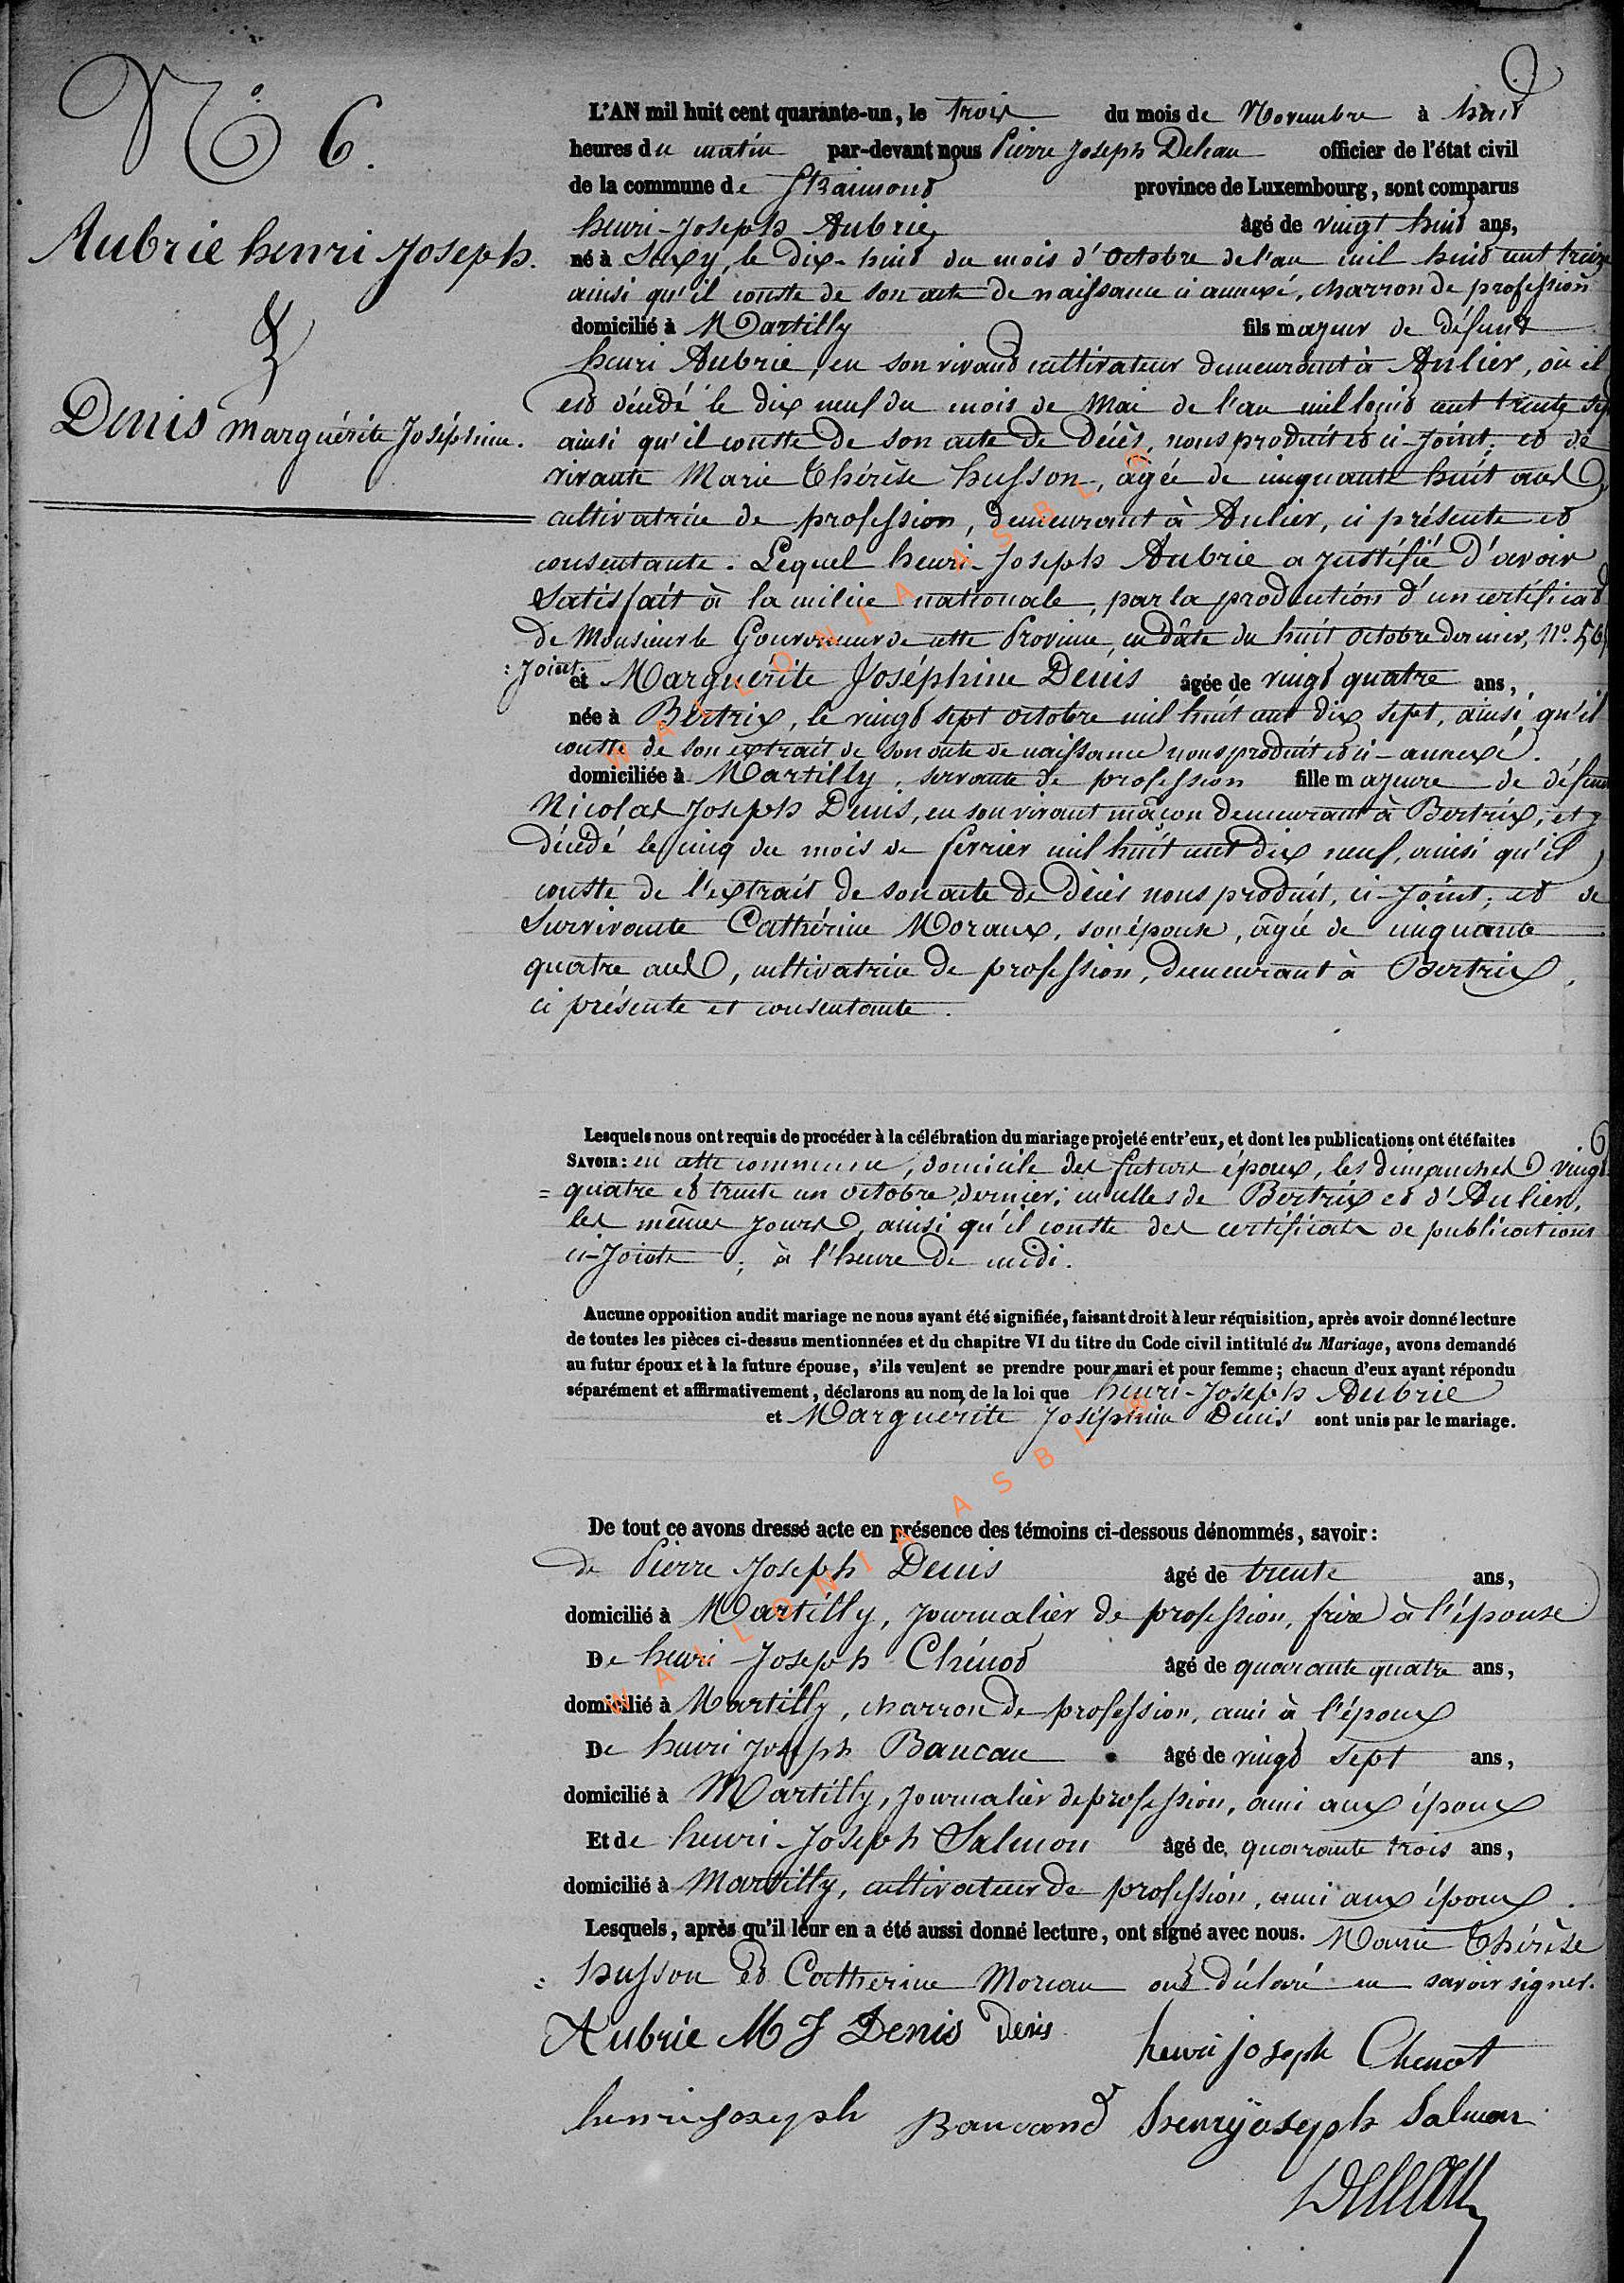 N.° 6.
Aubrie henri Joseph.
&
Denis Marguérite Joséphine.
L'AN mil huit cent quarante-un, le trois du mois de Novembre à huit
heures du matin par-devant nous Pierre Joseph Deleau officier de l'état civil
de la commune de Straimont province de Luxembourg, sont comparus
henri-Joseph Aubrie âgé de vingt huit ans,
né à Suxy, le dix-huit du mois d'octobre de l'an mil huit cent treize
ainsi qu'il conste de son acte de naissance ci annexé, charron de profession
domicilié à Martilly fils majeur de défunt
henri Aubrie, en son vivant cultivateur demeurant à Anlier, où il
est décédé le dix neuf du mois de Mai de l'an mil huit cent trente sept
ainsi qu'il conste de son acte de décès, nous produit et ci-joint; et de
vivante Marie Thérèse husson, agée de cinquante huit ans,
cultivatrice de profession, demeurant à Anlier, ci présente et
consentante. Lequel henri-Joseph Aubrie a justifié d'avoir
satisfait à la milice nationale, par la production d'un certificat
de Monsieur le Gouverneur de cette Province, en dâte du huit octobre dernier, N.°
: joint.
et Marguérite Joséphine Denis âgée de vingt quatre ans,
née à Bertrix, le vingt sept octobre mil huit cent dix sept, ainsi qu'il
conste de son extrait de son acte de naissance nous produit et ci-annexé.
domiciliée à Martilly, servante de profession fille majeure de défunt
Nicolas Joseph Denis, en son vivant maçon demeurant à Bertrix, et y
décédé le cinq du mois de fevrier mil huit cent dix neuf, ainsi qu'il
conste de l'extrait de son acte de décès nous produit, ci-joint; et de
Survivante Cathérine Moraux, son épouse, âgée de cinquante
quatre ans, cultivatrice de profession, demeurant à Bertrix,
ci présente et consentante.
Lesquels nous ont requis de procéder à la célébration du mariage projeté entr'eux, et dont les publications ont été faites
SAVOIR: en cette commune, domicile des futurs époux, les dimanches vingt
= quatre et trente un octobre dernier; en celles de Bertrix et d'Anlier,
les mêmes jours, ainsi qu'il conste des certificats de publications
ci-joints; à l'heure de midi.
Aucune opposition audit mariage ne nous ayant été signifiée, faisant droit à leur réquisition, après avoir donné lecture
de toutes les pièces ci-dessus mentionnées et du chapitre VI du titre du Code civil intitulé du Mariage, avons demandé
au futur époux et à la future épouse, s'ils veulent se prendre pour mari et pour femme; chacun d'eux ayant répondu
séparément et affirmativement, déclarons au nom de la loi que henri-Joseph Aubrie
et Marguérite Joséphine Denis sont unis par le mariage.
De tout ce avons dressé acte en présence des témoins ci-dessous dénommés, savoir:
de Pierre Joseph Denis âgé de trente ans,
domicilié à Martilly, journalier de profession, frère à l'épouse
De henri-Joseph Chénot âgé de quarante quatre ans,
domicilié à Martilly, charron de profession, ami à l'époux
De henri Joseph Baucau âgé de vingt sept ans,
domicilié à Martilly, journalier de profession, ami aux époux
Et de henri-Joseph Salmon âgé de quarante trois ans,
domicilié à Martilly, cultivateur de profession, ami aux époux.
Lesquels, après qu'il leur en a été aussi donné lecture, ont signé avec nous. Marie Thérèse
= husson et Catherine Moreau ont déclaré ne savoir signer.
Aubrie M J Denis Denis
henri joseph Chenot
henri Joseph Baucand henry joseph Salmon
Deleau
WALLONIA ASBL ®
WALLONIA ASBL ®